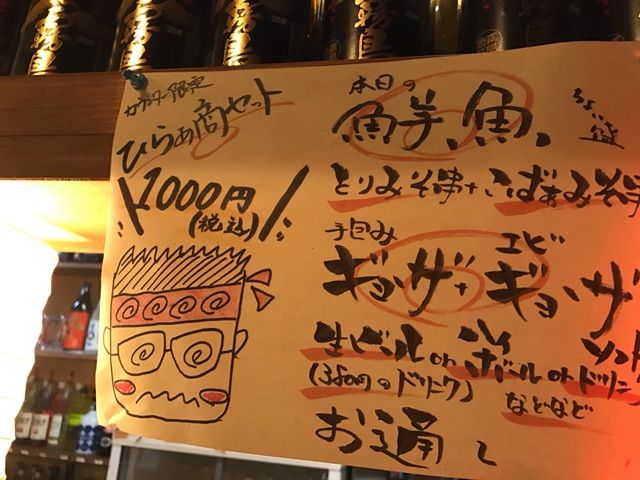 カウンター限定
ひらあ商セット
1000円
(税込)
本日の
鮮魚、
ちょい盛
とりみそ串+こばあみそ串
手包み
ギョーザ+
エビ
ギョーザ
生ビール or ハイボール or ドリン
(350円のドリンク)
などなど
お通し